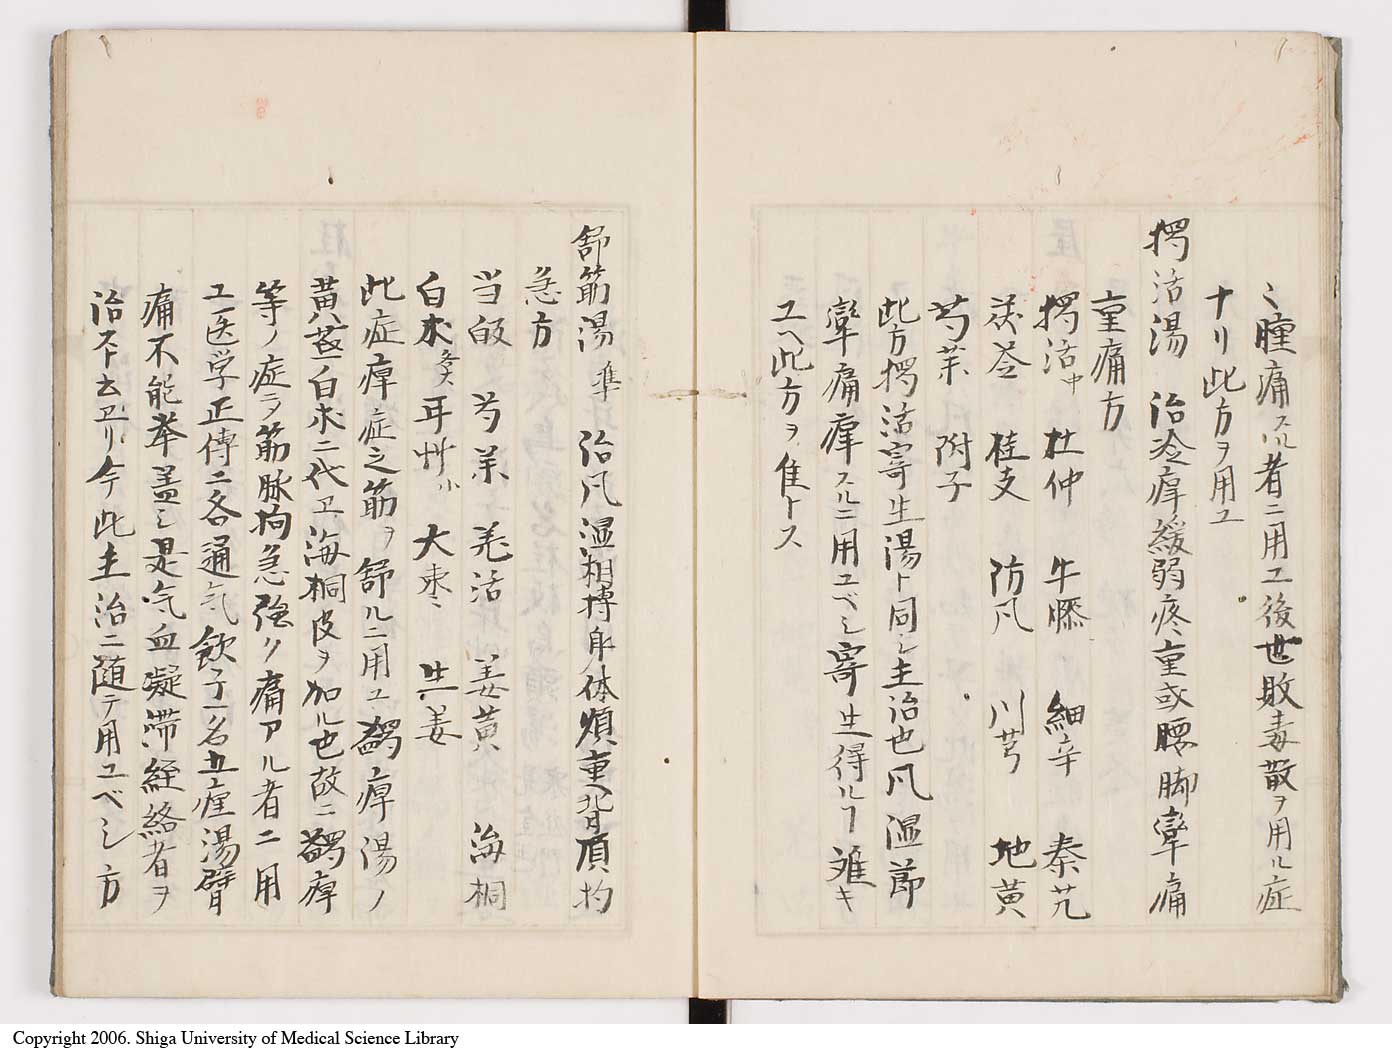 〻腫痛スル者ニ用ユ後世敗毒散ヲ用ル症
ナリ此方ヲ用ユ
獨活湯 治冷痺緩弱疼重或腰脚攣痛
重痛方
獨活中 杜仲 牛膝 細辛 秦艽
茯苓 桂支 防風 川芎 地黄
芍藥 附子
此方獨活寄生湯ト同シ主治也風湿節
攣痛痺スルニ用ユベシ寄生得ルヿ難キ
ユヘ此方ヲ隹トス
舒筋湯 準 治風湿相搏身体煩重背項拘
急方
当皈 芍藥 羌活 姜黄 海桐
白朮炙 耳艸小 大棗 生姜
此症痺症之筋ヲ舒ルニ用ユ蠲痺湯ノ
黄芪白朮ニ代ヱ海桐皮ヲ加ル也故ニ蠲痺
等ノ症ヨリ筋脉拘急強ク痛アル者ニ用
ユ医学正傳ニ名通気飲子一名五痺湯臂
痛不能挙盖シ是气血凝滞経絡者ヲ
治スト云ヱリ今此主治ニ随テ用ユベシ方
Copyright 2006. Shiga University of Medical Science Library